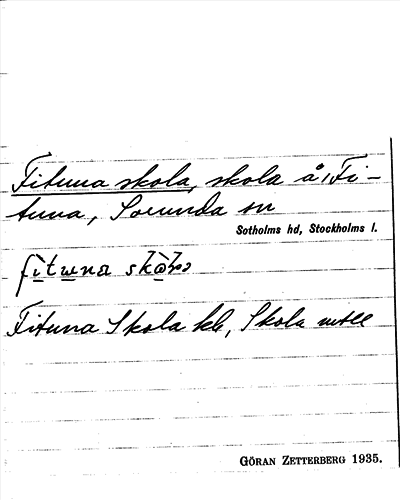 Fituna skola, skola å Fi-
tuna, Sorunda sn
Sotholms hd, Stockholms l.
Fituna Skola kb, Skola
GÖRAN ZETTERBERG 1935.